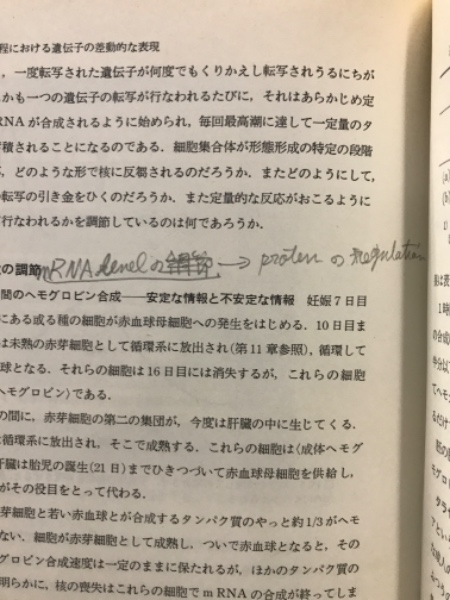 程における遺伝子の差動的な表現
，一度転写された遺伝子が何度でもくりかえし転写されうるにちが
かも一つの遺伝子の転写が行なわれるたびに，それはあらかじめ定
RNAが合成されるように始められ，毎回最高潮に達して一定量のタ
積されることになるのである．細胞集合体が形態形成の特定の段階
，どのような形で核に反芻されるのだろうか．またどのようにして，
転写の引き金をひくのだろうか．また定量的な反応がおこるように
行なわれるかを調節しているのは何であろうか．
mRNA level の → protein の regulation
の調節
間のヘモグロビン合成――安定な情報と不安定な情報　妊娠7日目
にある或る種の細胞が赤血球母細胞への発生をはじめる．10日目ま
は未熟の赤芽細胞として循環系に放出され(第11章参照)，循環して
球となる．それらの細胞は16日目には消失するが，これらの細胞
ヘモグロビン〉である．
の間に，赤芽細胞の第二の集団が，今度は肝臓の中に生じてくる．
循環系に放出され，そこで成熟する．これらの細胞は〈成体ヘモグ
肝臓は胎児の誕生(21日)までひきつづいて赤血球母細胞を供給し，
がその役目をとって代わる．
芽細胞と若い赤血球とが合成するタンパク質のやっと約1/3がヘモ
ない．細胞が赤芽細胞として成熟し，ついで赤血球となると，その
グロビン合成速度は一定のままに保たれるが，ほかのタンパク質の
明らかに，核の喪失はこれらの細胞でmRNAの合成が終ってしま
(a)
(b)
1時
の合成
半分以
てヘモ
るだけ
モグロ
タラセ
アとい